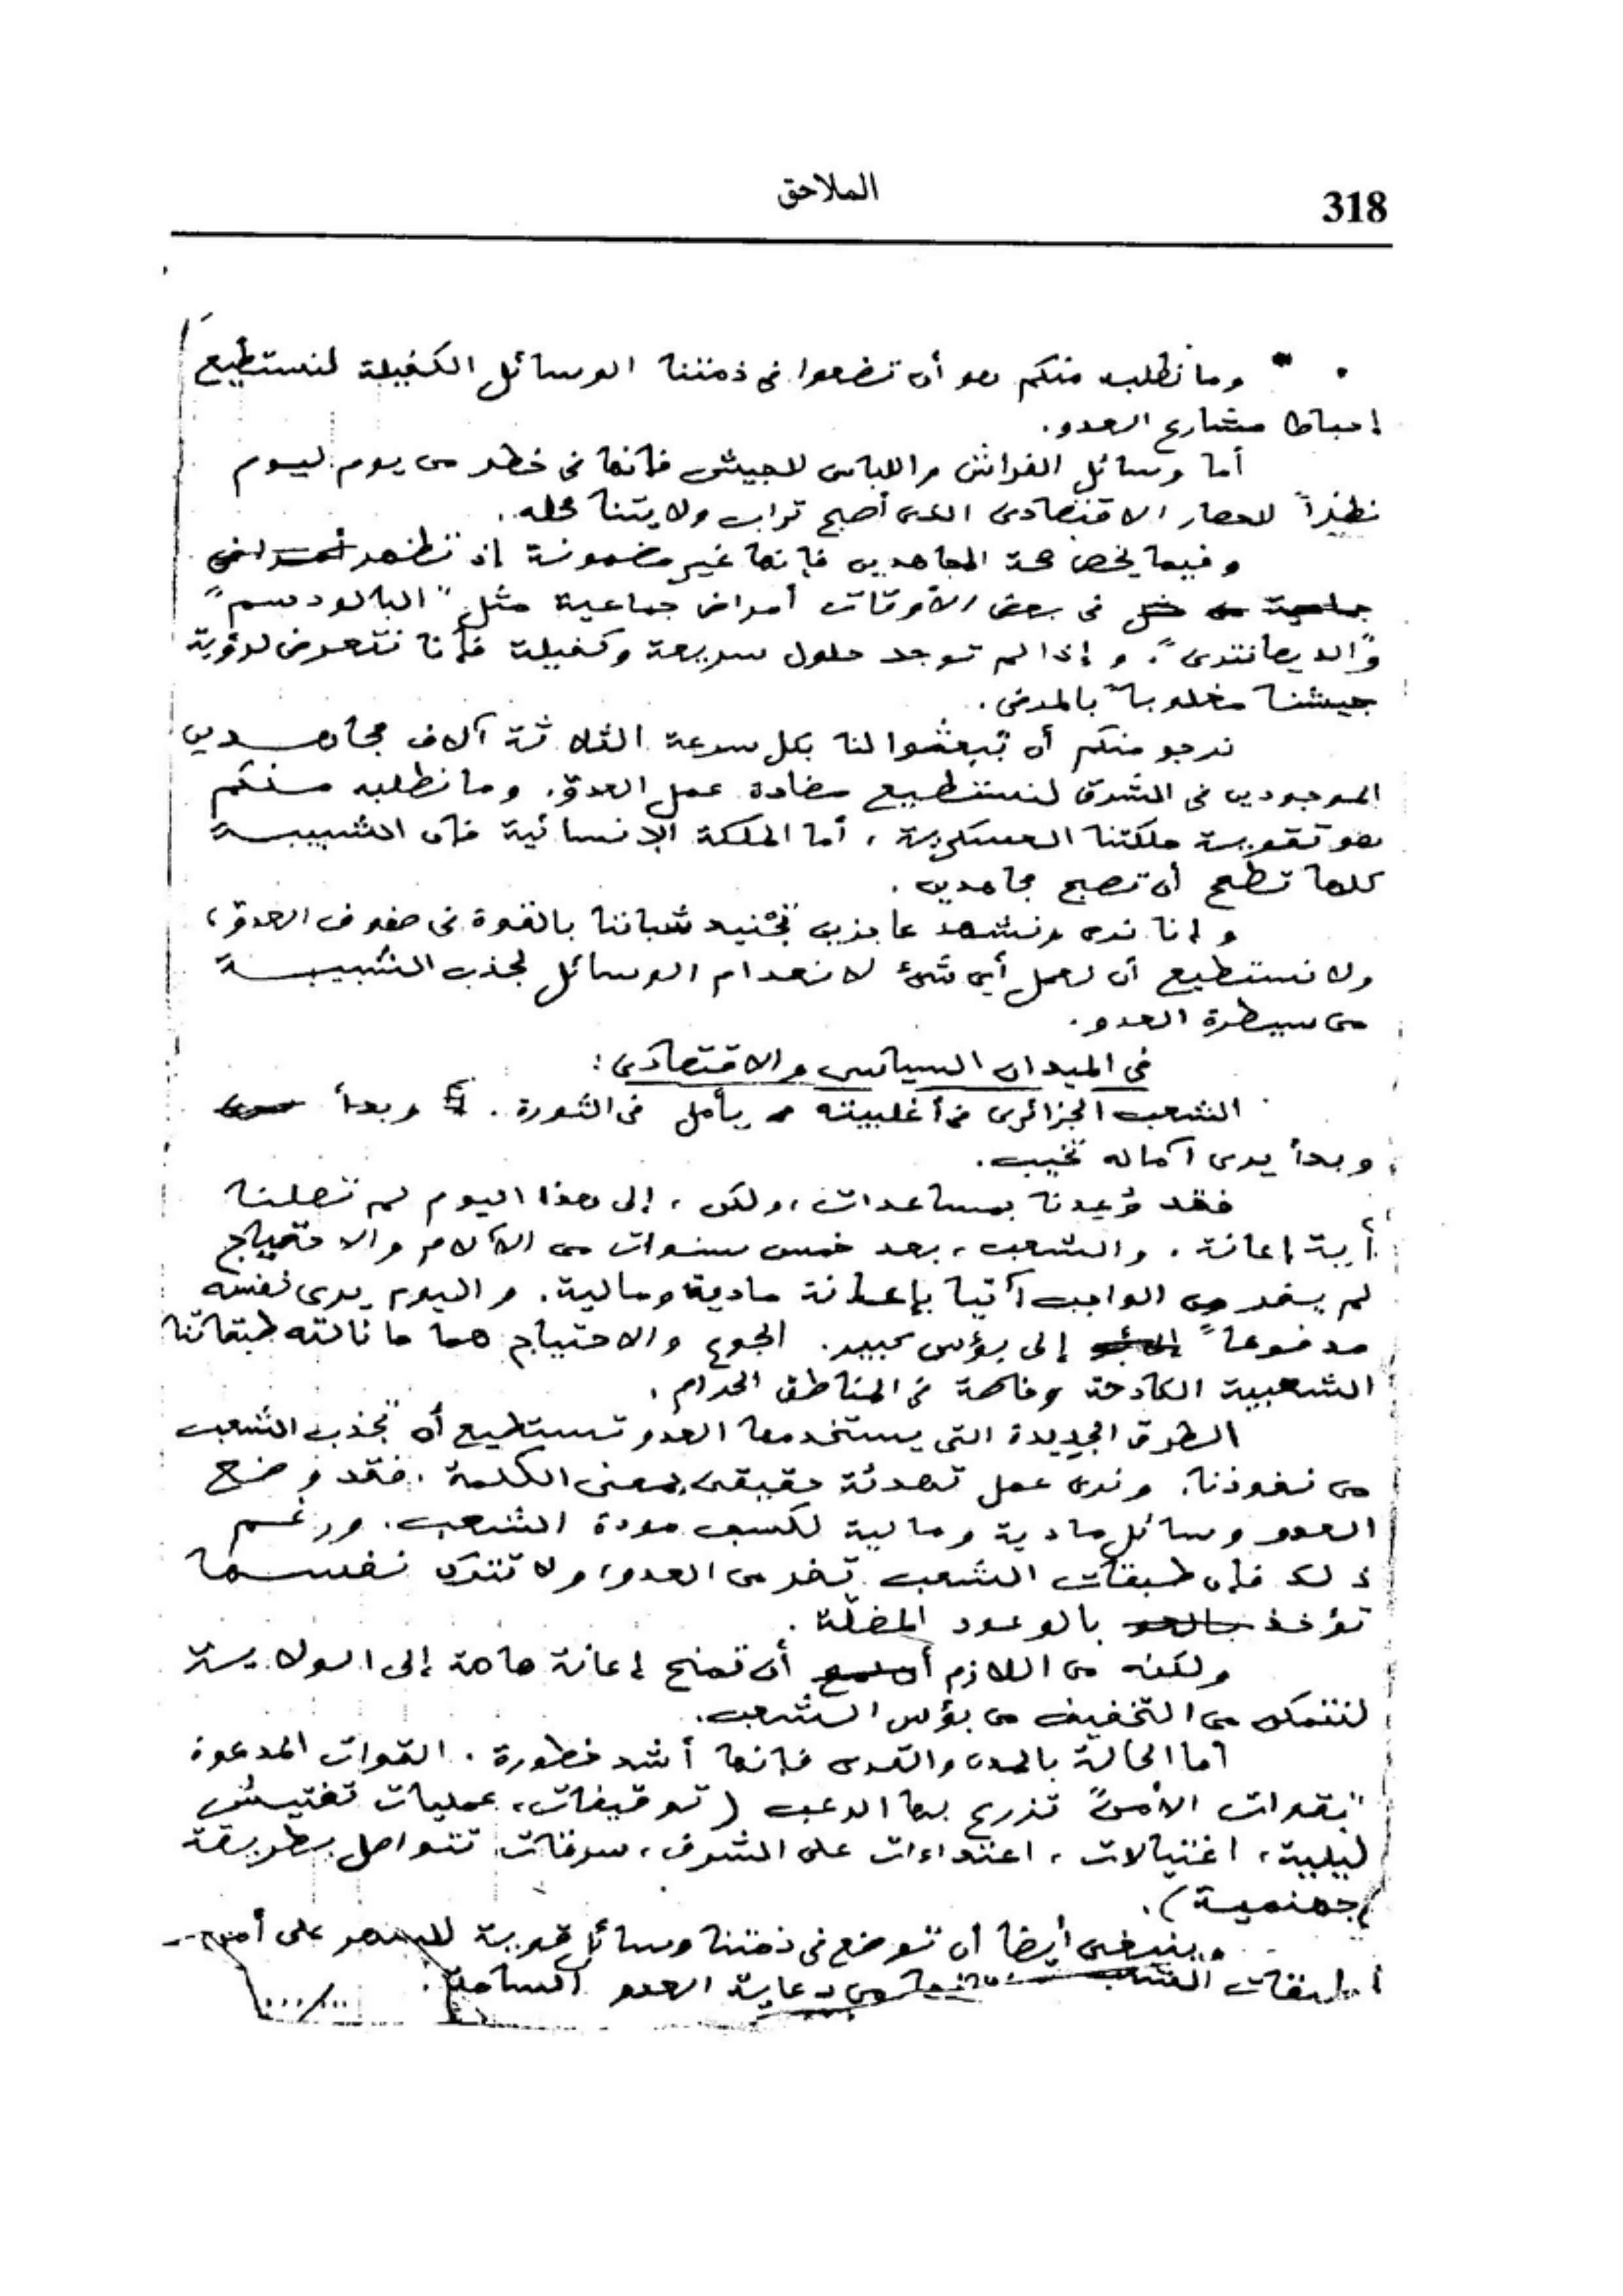 318
الملاحق
وما نطلبه منكم هو أن تضعوا فى ذمتنا الوسائل الكفيلة لنستطيع
إحباط مشارع العدو.
أما وسائل الفراش واللباس للجيش فإنها فى خطر من يوم ليوم
نظراً للحصار الاقتصادى الذى أصبح تراب ولايتنا محله.
وفيما يخص صحة المجاهدين فإنها غير مضمونة إذ تظهر أمراض
جماعية فى بعض الأوقات أمراض جماعية مثل "البالوديسم"
و"الديصانتری". وإذا لم توجد حلول سريعة وكفيلة فإنا نتعرض لرؤية
جيشنا مغلوباً بالمرض.
نرجو منكم أن تبعثوا لنا بكل سرعة الثلاثة آلاف مجاهدين
الموجودين فى الشرق لنستطيع مضادة عمل العدو. وما نطلبه منكم
هو تقوية ملكتنا العسكرية، أما الملكة الإنسانية فإن الشبيبة
كلها تطمح أن تصبح مجاهدين.
وإنا نرى ونشهد عاجزين تجنيد شباننا بالقوة فى صفوف العدو،
ولا نستطيع أن نعمل أي شىء لانعدام الوسائل لجذب الشبيبة
من سيطرة العدو.
فى الميدان السياسى والاقتصادى:
الشعب الجزائرى فى أغلبيته يأمل فى الثورة. وبدأ
وبدأ يرى آماله تخيب.
فقد وُعِدنا بمساعدات، ولكن، إلى هذا اليوم لم تصلنا
أية إعانة. والشعب، بعد خمس سنوات من الآلام والاحتياج
لم يفر من الواجب آتيا بإعانة مادية ومالية. واليوم يرى نفسه
مدفوعاً إلى بؤس كبير. الجوع والاحتياج هما ما نالته طبقاتنا
الشعبية الكادحة وخاصة فى المناطق الحرام.
الطرق الجديدة التى يستخدمها العدو تستطيع أن تجذب الشعب
من نفوذنا. ونرى عمل تهدئة حقيقى بمعنى الكلمة. فقد وضع
العدو وسائل مادية ومالية لكسب مودة الشعب. ورغم
ذلك فإن طبقات الشعب تفر من العدو، ولا تترك نفسها
تؤخذ بالوعود المضلّة.
ولكنه من اللازم أن تمنح إعانة هامة إلى الولاية
لنتمكن من التخفيف من بؤس الشعب.
أما الحالة بالمدن والقرى فإنها أشد خطورة. القوات المدعوة
"بقوات الأمن" تزرع بها الرعب (توقيفات، عمليات تفتيش
ليلية، اغتيالات، اعتداءات على الشرف، سرقات تتواصل بطريقة
جهنمية).
وينبغى أيضا أن توضع فى ذمتنا وسائل قوية للسهر على أمن
طبقات الشعب من دعاية العدو السامة.
.../...